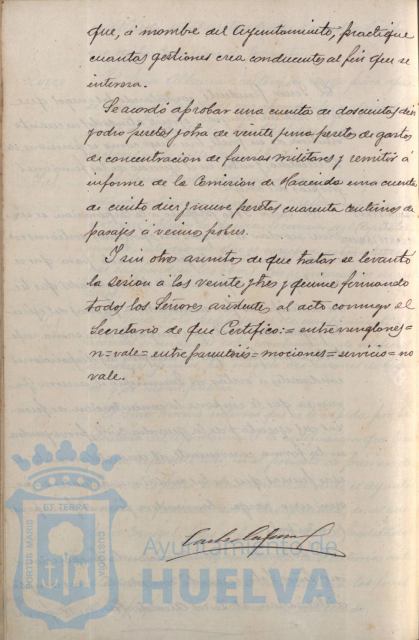 que, á nombre del Ayuntamiento, practique
cuantas gestiones crea conducentes al fin que se
interesa.
Se acordó aprobar una cuenta de doscientas diez
y ocho pesetas y otra de veinte y una pesetas de gastos
de concentracion de fuerzas militares y remitir á
informe de la Comision de Hacienda una cuenta
de ciento diez y nueve pesetas cuarenta centimos de
pasajes á vecinos pobres.
Y sin otros asuntos de que tratar se levantó
la sesion á las veinte y tres y quince firmando
todos los Señores asistentes al acto conmigo el
Secretario de que Certifico:=entre renglones=
n=vale=entre parentesis=mociones=servicio=no
vale.
PORTUS MARIS
ET TERRÆ
CUSTODIA
Ayuntamiento de
HUELVA